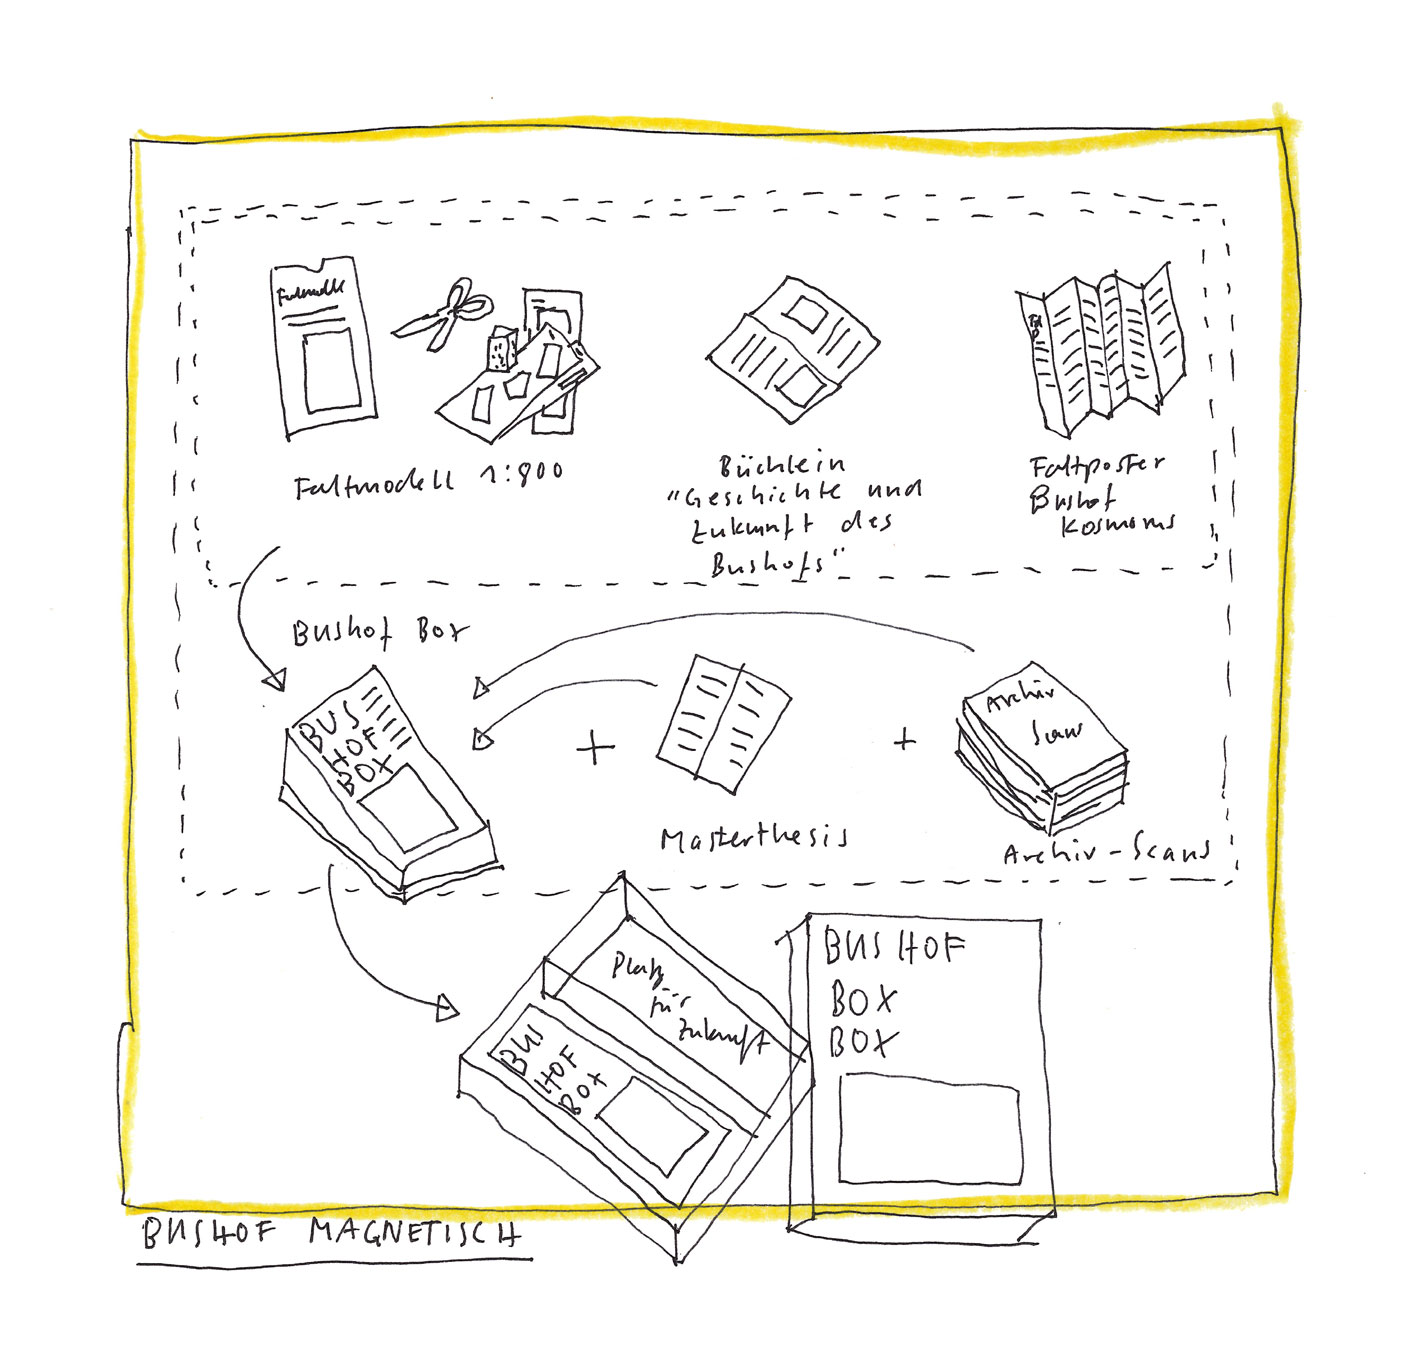 Faltmodell 1:800
Büchlein
"Geschichte und
Zukunft des
Bushofs"
Faltposter
Bushof
Kosmoms
Bushof Box
BUS
HOF
BOX
+
Masterthesis
+
Archiv
Scans
Archiv-Scans
Platz
für
Zukunft
BUS
HOF
BOX
BUSHOF
BOX
BOX
BUSHOF MAGNETISCH